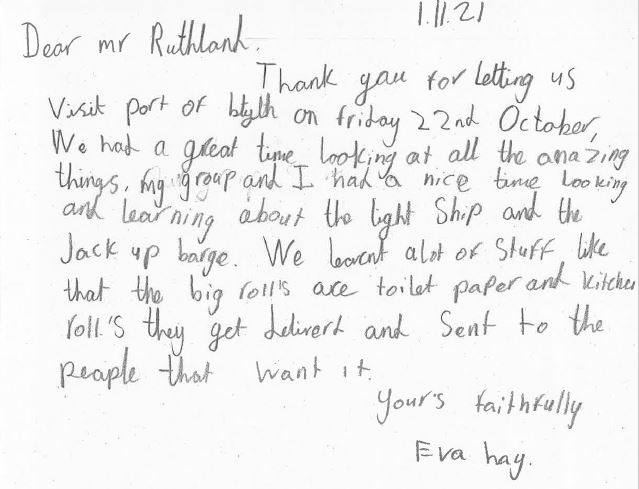 1.11.21
Dear mr Ruthland.
Thank you for letting us
Visit port of blyth on friday 22nd October,
We had a great time looking at all the amazing
things. My group and I had a nice time looking
and learning about the light Ship and the
Jack up barge. We learnt alot of stuff like
that the big roll's are toilet paper and kitchen
roll's they get deliverd and sent to the
peaple that want it.
Your's faithfully
Eva hay.